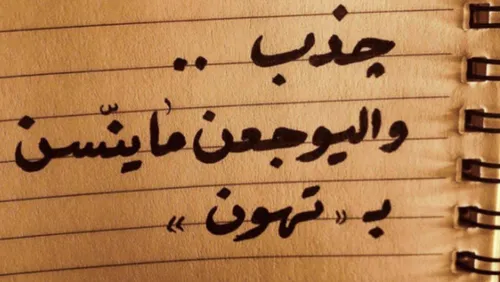 چذب ..
واليوجعن مُاينّسن
بـ «تهون»